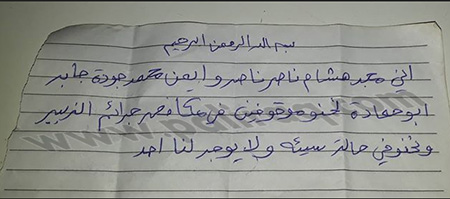 بسم الله الرحمن الرحيم
اني محمد هشام ناصر ناصر و ايمن محمد جودة جابر
ابو حمادة نحنو موقوفين في مكافحه جرائم التزبير
ونحنو في حالة سيئه ولا يوجد لنا احد